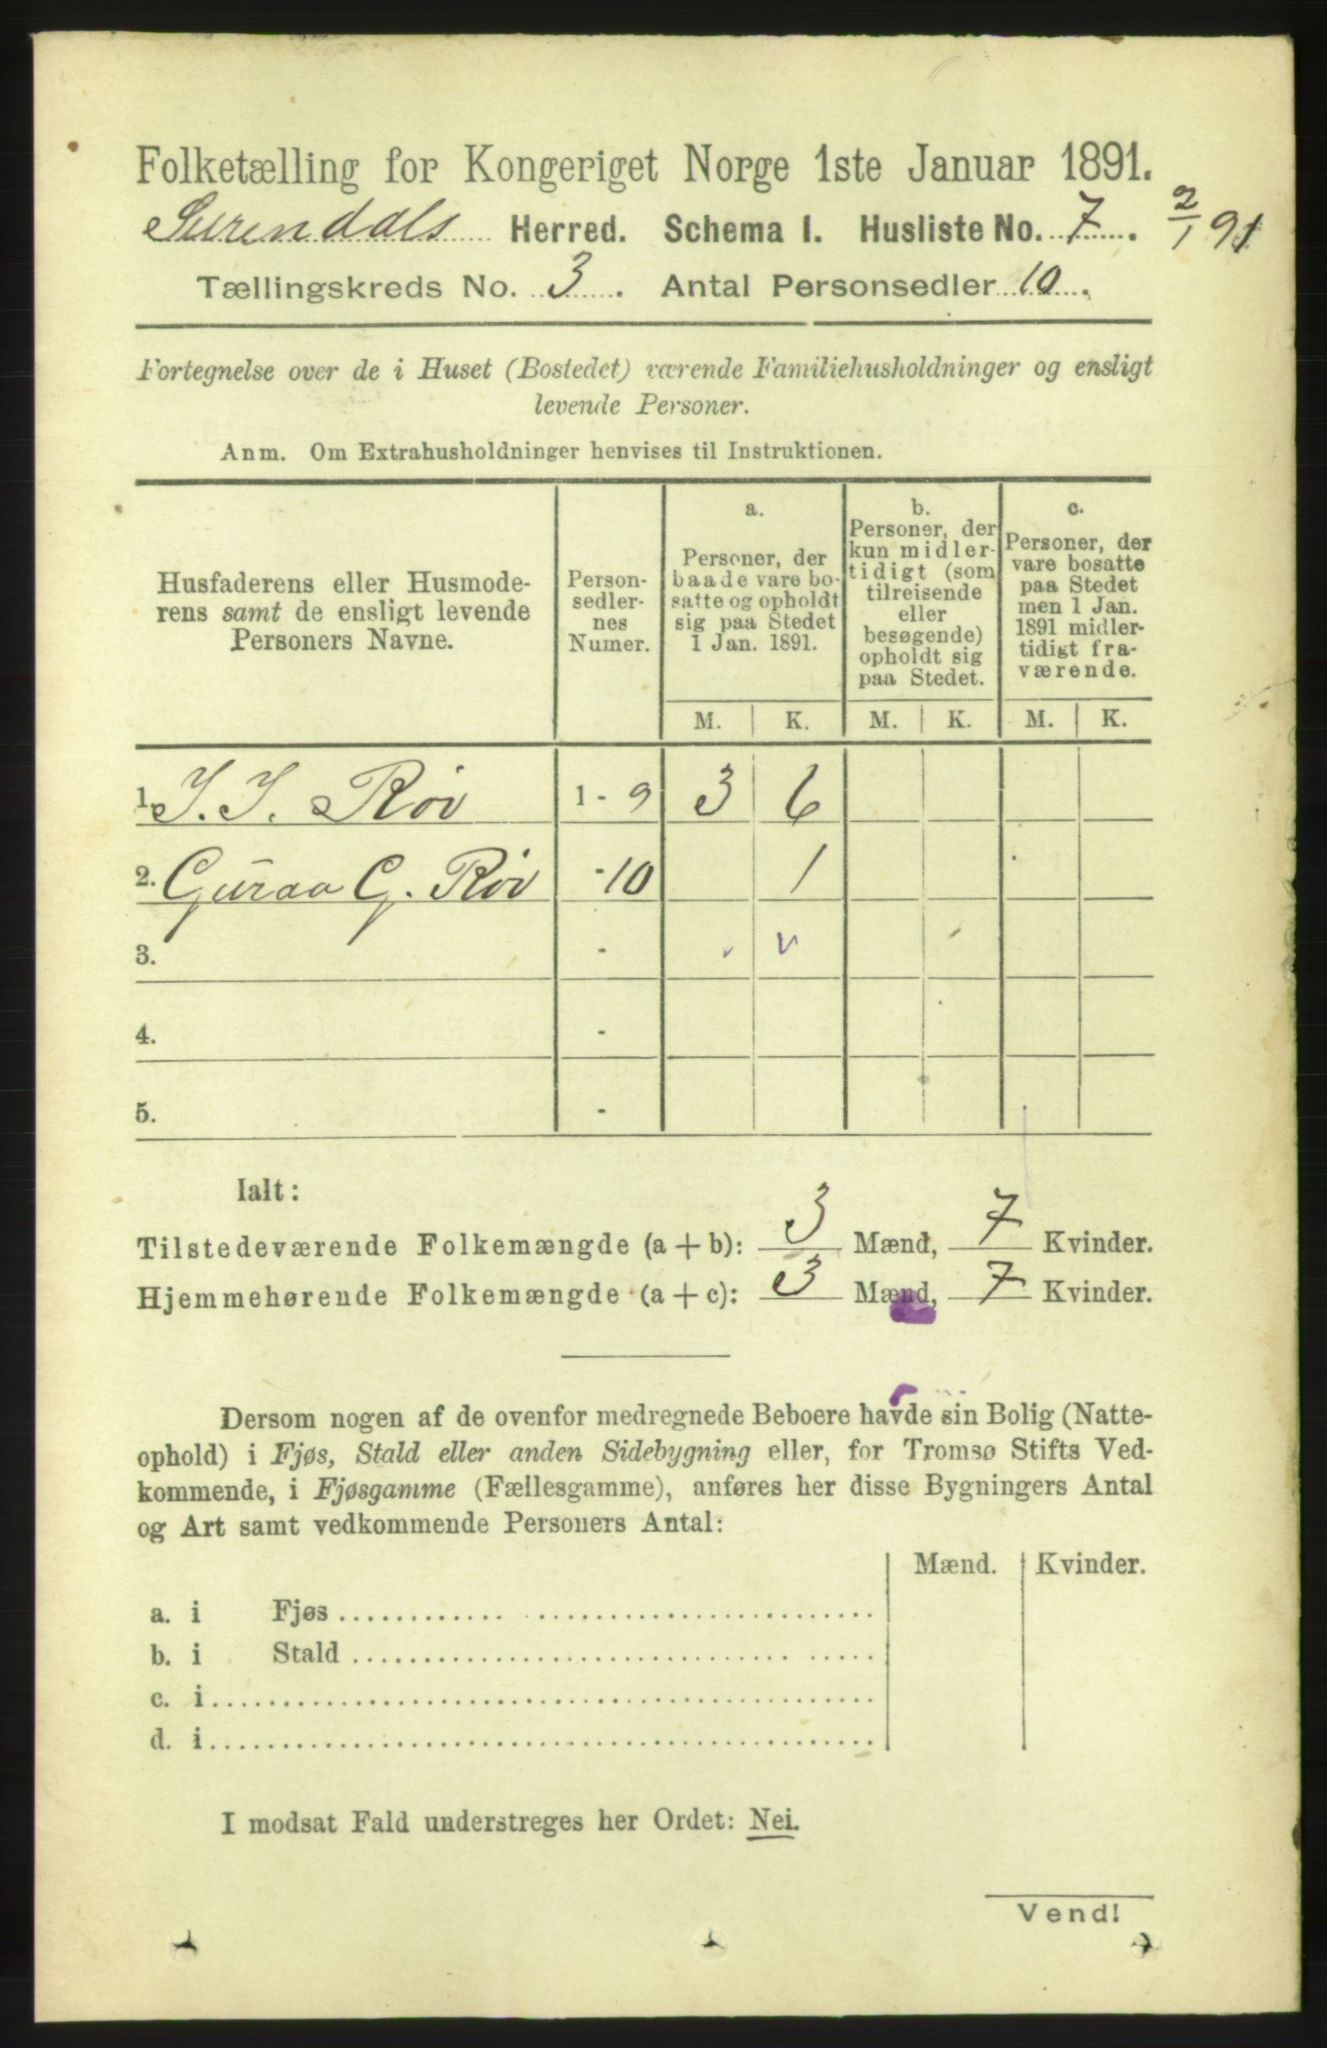 Folketælling for Kongeriget Norge 1ste Januar 1891.
Surendals Herred. Schema I. Husliste No. 7. 2/1 91
Tællingskreds No. 3. Antal Personsedler 10.
Fortegnelse over de i Huset (Bostedet) værende Familiehusholdninger og ensligt
levende Personer.
Anm. Om Extrahusholdninger henvises til Instruktionen.
Husfaderens eller Husmode-
rens samt de ensligt levende
Personers Navne.
Person-
sedler-
nes
Numer.
a.
Personer, der
baade vare bo-
satte og opholdt
sig paa Stedet
1 Jan. 1891.
b.
Personer, der
kun midler-
tidigt (som
tilreisende
eller
besøgende)
opholdt sig
paa Stedet.
c.
Personer, der
vare bosatte
paa Stedet
men 1 Jan.
1891 midler-
tidigt fra-
værende.
M. K. M. K. M. K.
1. I. I. Røv 1 - 9 3 6
2. Guraa G. Røv - 10 1
3. -
4. -
5. -
Ialt:
Tilstedeværende Folkemængde (a + b): 3 Mænd, 7 Kvinder.
Hjemmehørende Folkemængde (a + c): 3 Mænd, 7 Kvinder.
Dersom nogen af de ovenfor medregnede Beboere havde sin Bolig (Natte-
ophold) i Fjøs, Stald eller anden Sidebygning eller, for Tromsø Stifts Ved-
kommende, i Fjøsgamme (Fællesgamme), anføres her disse Bygningers Antal
og Art samt vedkommende Personers Antal:
Mænd. Kvinder.
a. i Fjøs
b. i Stald
c. i
d. i
I modsat Fald understreges her Ordet: Nei.
Vend!